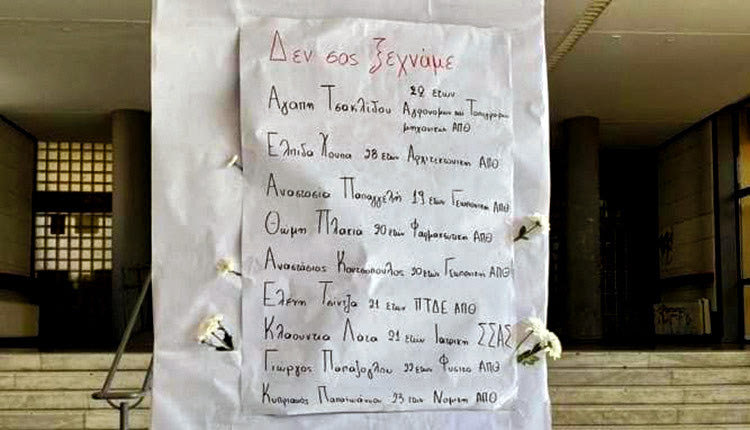 Δεν σας ξεχνάμε
Αγαπη Τσακλίδου 22 ετων Αγρονομων και Τοπογραφων
μηχανικων ΑΠΘ
Ελπιδα Χουπα 28 ετων Αρχιτεκτονικη ΑΠΘ
Αναστασια Παπαγγελή 19 ετων Γεωπονικη ΑΠΘ
Θωμη Πλακια 20 ετων Φαρμακευτικη ΑΠΘ
Αναστάσιος Κουτσοπουλος 20 ετων Γεωπονικη ΑΠΘ
Ελενη Τσιντζα 21 ετων ΠΤΔΕ ΑΠΘ
Κλαουντια Λατα 21 ετων Ιατρικη ΣΣΑΣ
Γιωργος Παπαζογλου 22 ετων Φυσικο ΑΠΘ
Κυπριανος Παπαϊωάννου 23 ετων Νομικη ΑΠΘ